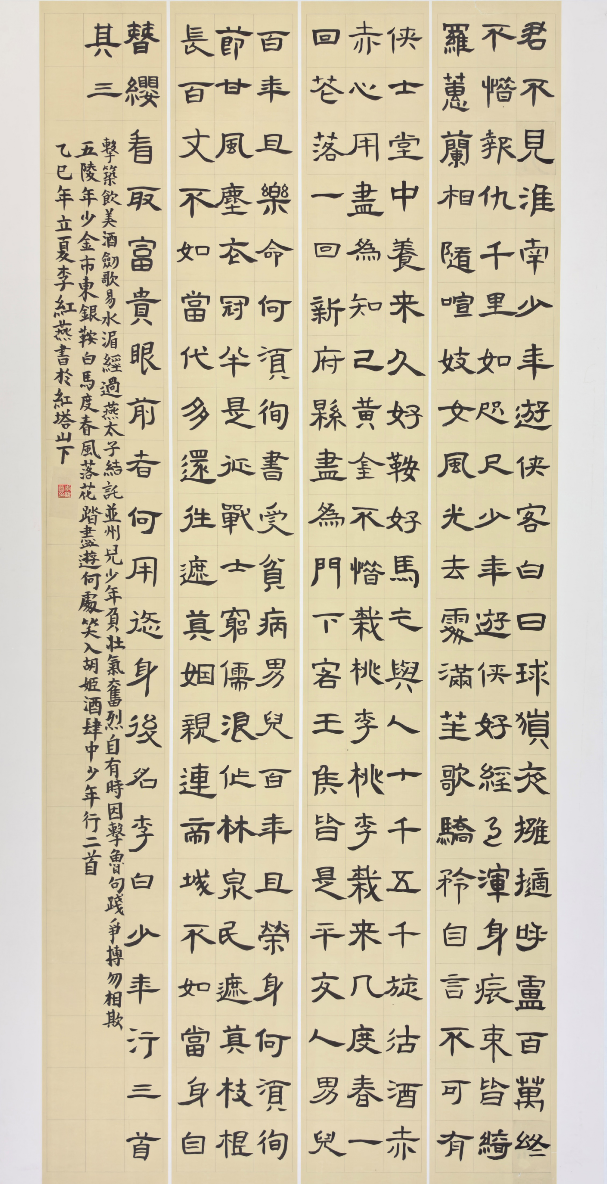 君不見淮南少年遊俠客白日球獵夜擁擿呼盧百萬終
不惜報仇千里如咫尺少年遊俠好經過渾身裝束皆綺
羅蕙蘭相隨喧妓女風光去處滿笙歌驕矜自言不可有
俠士堂中養来久好鞍好馬乞與人十千五千旋沽酒赤
赤心用盡為知己黃金不惜栽桃李桃李栽来几度春一
回花落一回新府縣盡為門下客王侯皆是平交人男兒
百年且樂命何須徇書受貧病男兒百年且榮身何須徇
節甘風塵衣冠半是征戰士窮儒浪作林泉民遮莫枝根
長百丈不如當代多還往遮莫姻親連帝城不如當身自
簪纓看取富貴眼前者何用悠身後名李白少年行三首
其三
擊築飲美酒劍歌易水湄經過燕太子結託並州兒少年負壯氣奮烈自有時因擊魯句踐爭搏勿相欺
五陵年少金市東銀鞍白馬度春風落花踏盡遊何處笑入胡姬酒肆中少年行二首
乙巳年立夏李紅燕書於紅塔山下